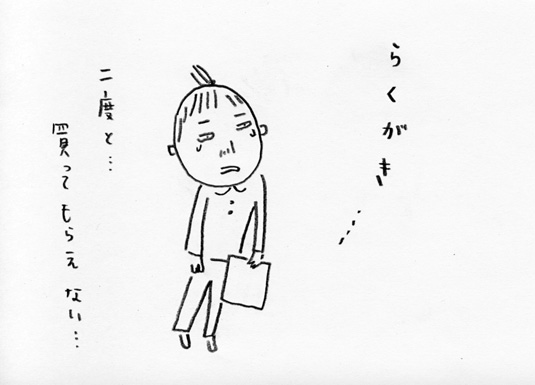 らくがき…
二度と…
買ってもらえない…